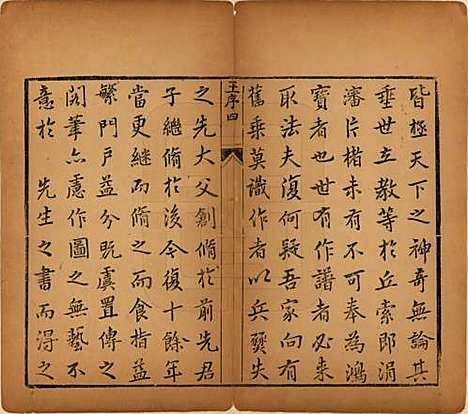 皆極天下之神奇無論其
垂世立教等於丘索即涓
瀋片楮未有不可奉為鴻
寶者也世有作譜者必来
取法夫復何疑吾家向有
舊乗莫識作者以兵燹失
王序四
之先大父創脩於前先君
子繼脩於後今復十餘年
當更継而脩之而食指益
繁門戸益分既虞置傳之
闊筆亦慮作圖之無藝不
意於先生之書而得之